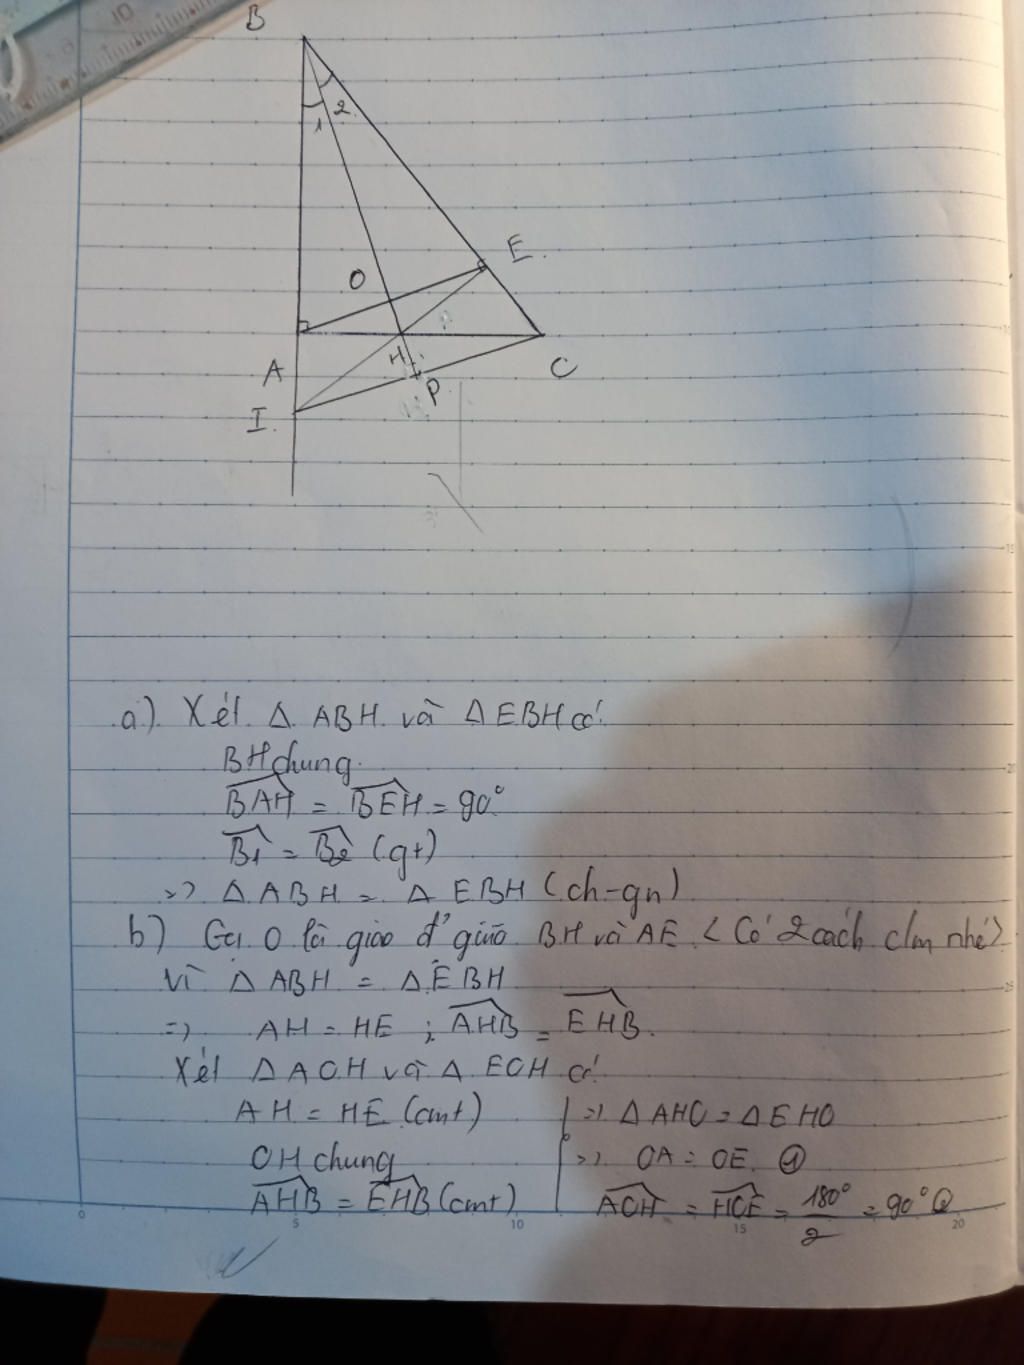 10
B
1 2
E
O
A H C
I P
a) Xét Δ ABH và Δ EBH có:
BH chung
BAH = BEH = 90°
B1 = B2 (gt)
=> Δ ABH = Δ EBH (ch-gn)
b) Gọi O là giao đ' giữa BH và AE < Có 2 cách c/m nhé>
Vì Δ ABH = Δ EBH
=> AH = HE ; AHB = EHB.
Xét Δ AOH và Δ EOH có:
AH = HE (cmt) => Δ AHO = Δ EHO
OH chung => OA = OE ①
AHB = EHB (cmt) AOH = HOE = 180°/2 = 90° ②
0 5 10 15 20